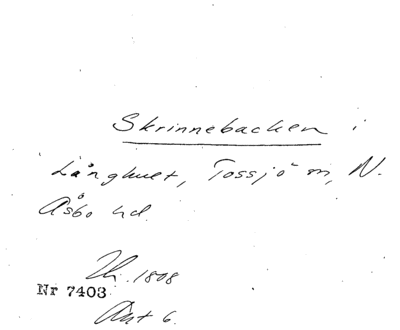 Skrinnebacken i
Långhult, Tossjö m, N.
Åsbo hd.
1808
Nr 7403
Akt 6.